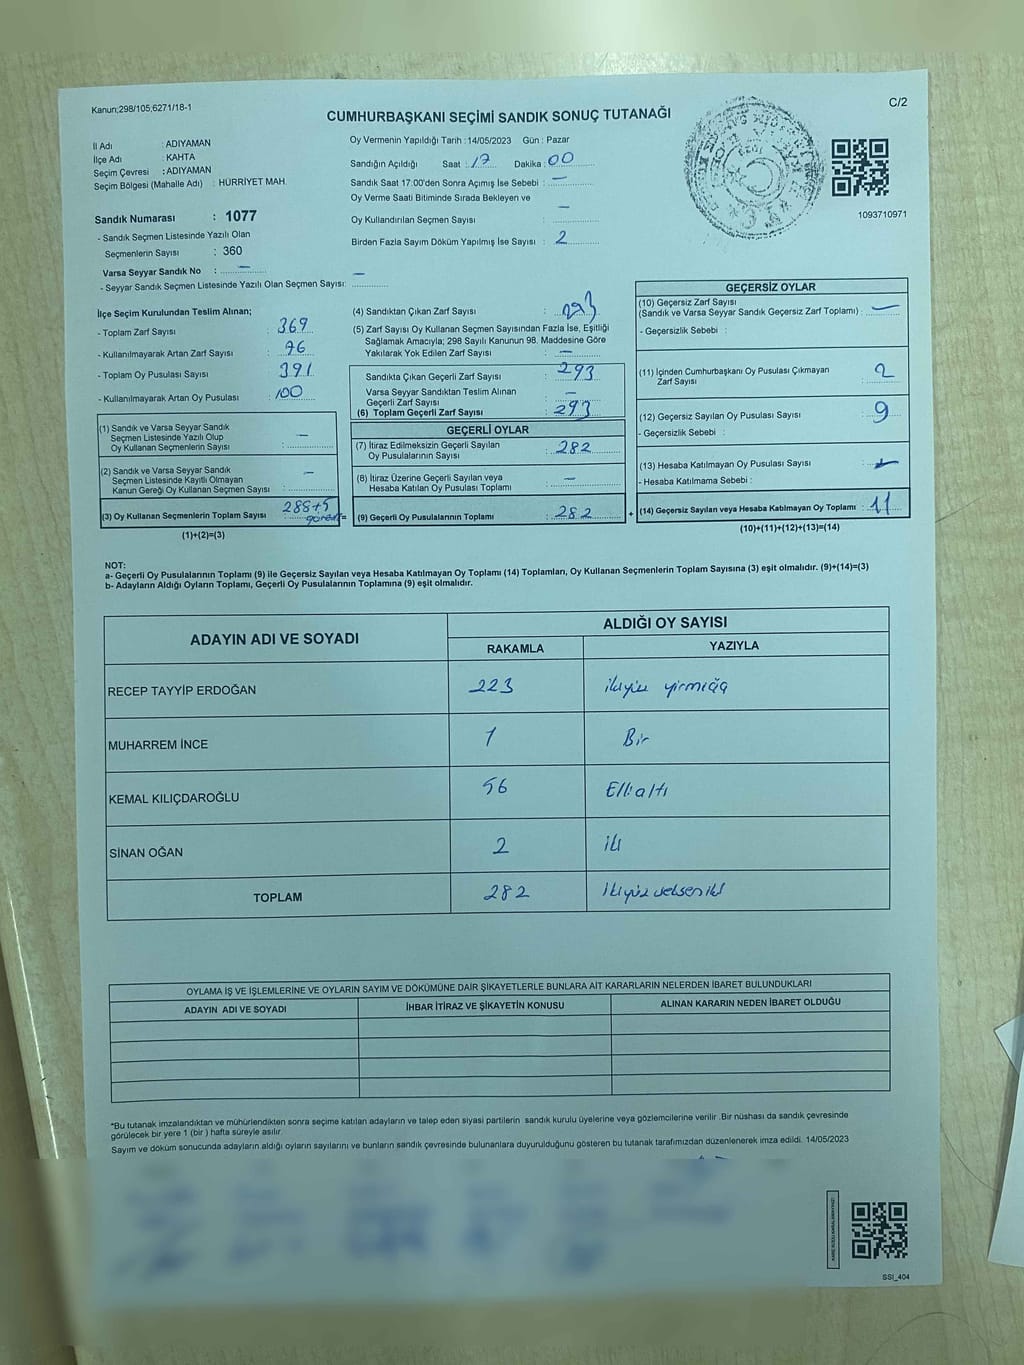 Kanun;298/105,6271/18-1
C/2
CUMHURBAŞKANI SEÇİMİ SANDIK SONUÇ TUTANAĞI
İl Adı : ADIYAMAN
İlçe Adı : KAHTA
Seçim Çevresi : ADIYAMAN
Seçim Bölgesi (Mahalle Adı) : HÜRRİYET MAH.
Sandık Numarası : 1077
- Sandık Seçmen Listesinde Yazılı Olan
Seçmenlerin Sayısı : 360
Varsa Seyyar Sandık No : —
- Seyyar Sandık Seçmen Listesinde Yazılı Olan Seçmen Sayısı: —
Oy Vermenin Yapıldığı Tarih : 14/05/2023 Gün : Pazar
Sandığın Açıldığı Saat : 17 Dakika : 00
Sandık Saat 17:00'den Sonra Açımış İse Sebebi : —
Oy Verme Saati Bitiminde Sırada Bekleyen ve
Oy Kullandırılan Seçmen Sayısı : —
Birden Fazla Sayım Döküm Yapılmış İse Sayısı : 2
1093710971
İlçe Seçim Kurulundan Teslim Alınan;
- Toplam Zarf Sayısı : 369
- Kullanılmayarak Artan Zarf Sayısı : 76
- Toplam Oy Pusulası Sayısı : 391
- Kullanılmayarak Artan Oy Pusulası : 100
(1) Sandık ve Varsa Seyyar Sandık
Seçmen Listesinde Yazılı Olup
Oy Kullanan Seçmenlerin Sayısı : —
(2) Sandık ve Varsa Seyyar Sandık
Seçmen Listesinde Kayıtlı Olmayan
Kanun Gereği Oy Kullanan Seçmen Sayısı : —
(3) Oy Kullanan Seçmenlerin Toplam Sayısı : 288+5
(1)+(2)=(3)
(4) Sandıktan Çıkan Zarf Sayısı : 293
(5) Zarf Sayısı Oy Kullanan Seçmen Sayısından Fazla İse, Eşitliği
Sağlamak Amacıyla; 298 Sayılı Kanunun 98. Maddesine Göre
Yakılarak Yok Edilen Zarf Sayısı : —
Sandıkta Çıkan Geçerli Zarf Sayısı : 293
Varsa Seyyar Sandıktan Teslim Alınan
Geçerli Zarf Sayısı : —
(6) Toplam Geçerli Zarf Sayısı : 293
GEÇERLİ OYLAR
(7) İtiraz Edilmeksizin Geçerli Sayılan
Oy Pusulalarının Sayısı : 282
(8) İtiraz Üzerine Geçerli Sayılan veya
Hesaba Katılan Oy Pusulası Toplamı : —
(9) Geçerli Oy Pusulalarının Toplamı : 282
GEÇERSİZ OYLAR
(10) Geçersiz Zarf Sayısı
(Sandık ve Varsa Seyyar Sandık Geçersiz Zarf Toplamı) : —
- Geçersizlik Sebebi :
(11) İçinden Cumhurbaşkanı Oy Pusulası Çıkmayan
Zarf Sayısı : 2
(12) Geçersiz Sayılan Oy Pusulası Sayısı : 9
- Geçersizlik Sebebi :
(13) Hesaba Katılmayan Oy Pusulası Sayısı : —
- Hesaba Katılmama Sebebi :
+ (14) Geçersiz Sayılan veya Hesaba Katılmayan Oy Toplamı : 11
(10)+(11)+(12)+(13)=(14)
NOT:
a- Geçerli Oy Pusulalarının Toplamı (9) ile Geçersiz Sayılan veya Hesaba Katılmayan Oy Toplamı (14) Toplamları, Oy Kullanan Seçmenlerin Toplam Sayısına (3) eşit olmalıdır. (9)+(14)=(3)
b- Adayların Aldığı Oyların Toplamı, Geçerli Oy Pusulalarının Toplamına (9) eşit olmalıdır.
ADAYIN ADI VE SOYADI ALDIĞI OY SAYISI
RAKAMLA YAZIYLA
RECEP TAYYİP ERDOĞAN 223 ikiyüz yirmiüç
MUHARREM İNCE 1 Bir
KEMAL KILIÇDAROĞLU 56 Ellialtı
SİNAN OĞAN 2 iki
TOPLAM 282 ikiyüzseksen iki
OYLAMA İŞ VE İŞLEMLERİNE VE OYLARIN SAYIM VE DÖKÜMÜNE DAİR ŞİKAYETLERLE BUNLARA AİT KARARLARIN NELERDEN İBARET BULUNDUKLARI
ADAYIN ADI VE SOYADI İHBAR İTİRAZ VE ŞİKAYETİN KONUSU ALINAN KARARIN NEDEN İBARET OLDUĞU
*Bu tutanak imzalandıktan ve mühürlendikten sonra seçime katılan adayların ve talep eden siyasi partilerin sandık kurulu üyelerine veya gözlemcilerine verilir .Bir nüshası da sandık çevresinde
görülecek bir yere 1 (bir ) hafta süreyle asılır.
Sayım ve döküm sonucunda adayların aldığı oyların sayılarını ve bunların sandık çevresinde bulunanlara duyurulduğunu gösteren bu tutanak tarafımızdan düzenlenerek imza edildi. 14/05/2023
SSI_404